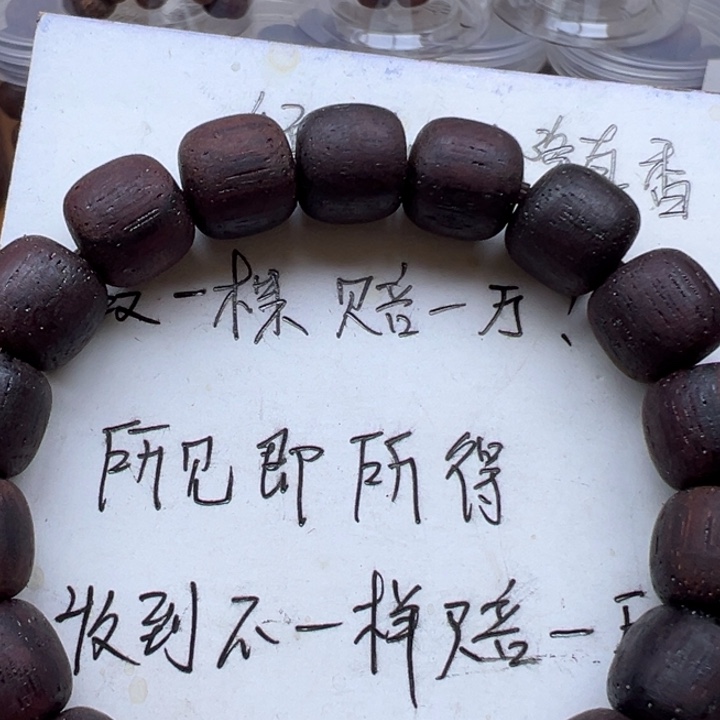 香
一棵 赔一万!
所见即所得
收到不一样赔一